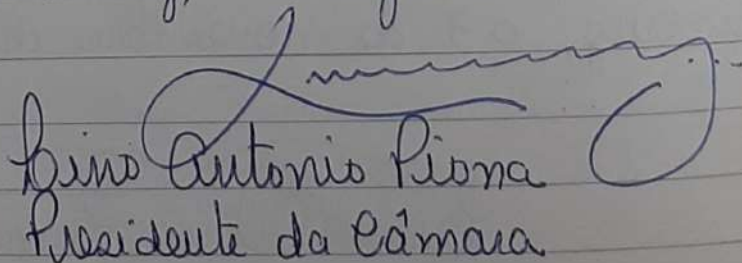 Lino Antonio Piona
Presidente da Câmara